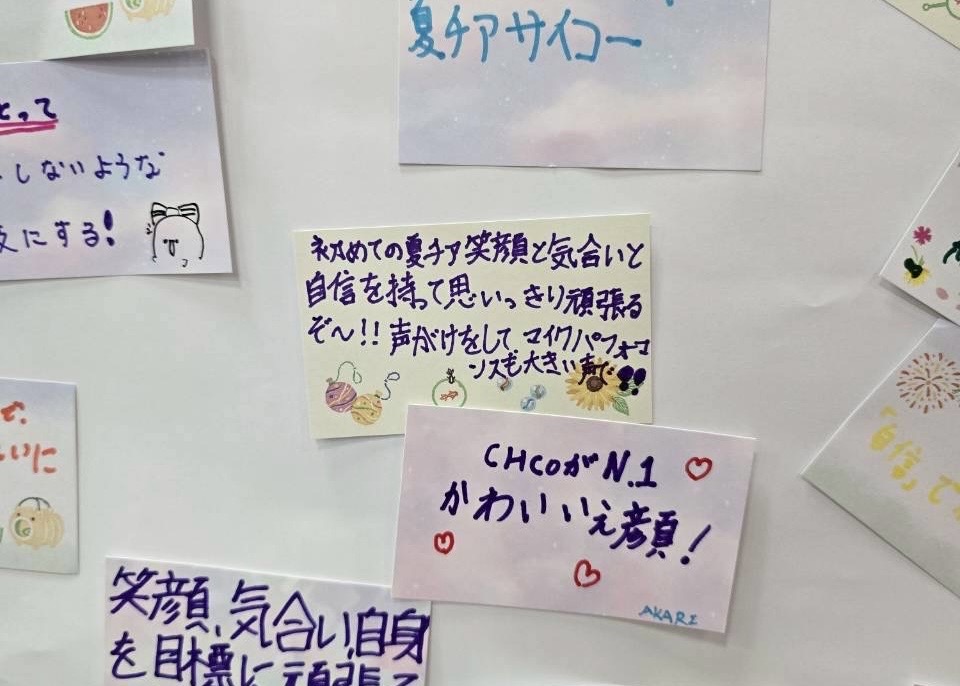 夏チアサイコー
とって
しないような
にする!
初めての夏チア笑顔と気合いと
自信を持って思いっきり頑張る
ぞ〜!!声がけをして、マイクパフォーマ
ンスも大きい声で!!
CHCOがN.1
かわいいえ顔!
AKARI
で、
いに
「自信」で
笑顔、気合い、自身
を目標に頑張って